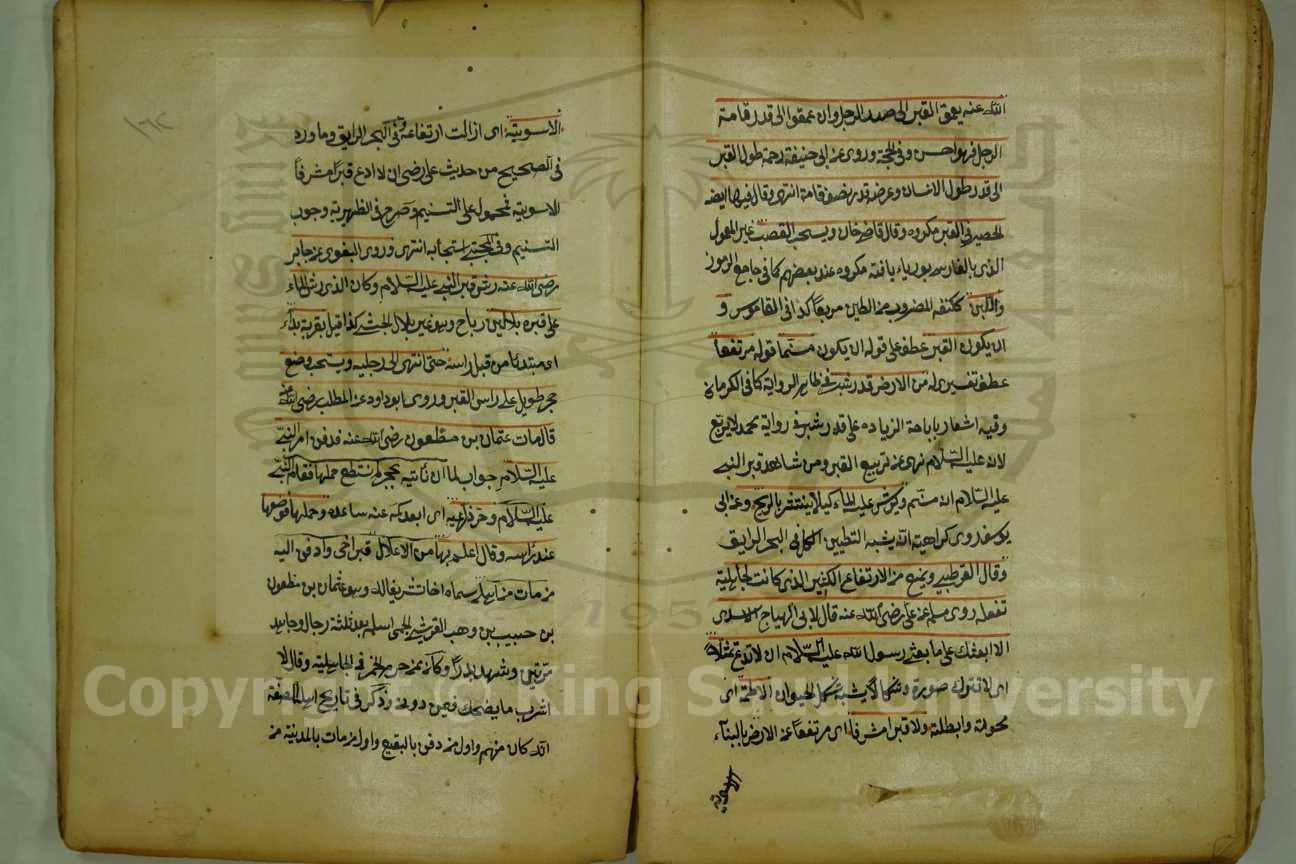 الله عنه يعمق القبر الى صدر الرجل وان عمقوا الى قدر قامة
الرجل فهو احسن وفى الحجة وروى عن ابى حنيفة رحمة طول القبر
الى قدر طول الانسان وعرضه قدر نصف قامة انتهى وقال فيها ايضه
الحصير فى القبر مكروه وقال قاضيخان ويستحب القصب غير المعمول
الذى بالفارسى بورياء بافته مكروه عند بعضهم كما فى جامع الرموز
واللبن ككتف المضروب من الطين مربعاً كذا فى القاموس و
ان يكون القبر عطف على قوله ان يكون مسنما قوله مرتفعا
عطف تفسيرى له من الارض قدر شبر فى ظاهر الرواية كما فى الكرمانى
وفيه اشعار باباحة الزيادة على قدر شبر فى رواية محمد لا يربع
لانه عليه السلام نهى عن تربيع القبر ومن شاهد قبر النبى
عليه السلام انه مسنم ويرش عليه الماء كيلا ينتشر بالريح وعن ابى
يوسف روى كراهيته انه يشبه التطيين كما فى البحر الرايق
وقال القرطبى ويمنع من الارتفاع الكثير الذى كانت الجاهلية
تفعله روى مسلم عن على رضى الله عنه قال لابى الهياج الاسدى
الا ابعثك على ما بعثنى رسول الله عليه السلام ان لا تدع تمثالا
اى لا تترك صورة وشكلا يشبه شكل الحيوان الا طمسته اى
محوته وابطلته ولا قبرا مشرفا اى مرتفعاً عن الارض بالبناء
الا سويته
١٦٢
الا سويته اى ازالت ارتفاعه وفى البحر الرايق وما ورد
فى الصحيح من حديث على رضى ان لا ادع قبرا مشرفاً
الا سويته فمحمول على التسنيم وصرح فى الظهيرية وجوب
التسنيم وفى المجتبى استحبابه انتهى وروى البغوى عن جابر
رضى الله عنه رش قبر النبى عليه السلام وكان الذى رش الماء
على قبره بلال بن رباح وهو غير بلال الحبشى كذا قيل بقربة بداء
اى مبتدئا من قبل راسه حتى انتهى الى رجليه ويستحب وضع
حجر طويل على راس القبر وروى ابو داود عن المطلب رضى الله عنه
قال مات عثمان بن مظعون رضى الله عنه فدفن امر النبى
عليه السلام جواب لما ان ناتيه بحجر لم نستطع حملها فقام النبى
عليه السلام وحسر ذراعيه اى ابعد كمه عنه ساعده وحملها فوضعها
عند راسه وقال اعلم بها من الاعلال قبر اخى وادفن اليه
من مات من اهلى سماه اخا تشريفا له وهو عثمان بن مظعون
بن حبيب بن وهب القرشى الجمحى اسلم بعد ثلثة رجال وجاهد
مرتين وشهد بدرا وكان ممن حرم الخمر فى الجاهلية وقال لا
اشرب ما يضحك فيمن دونى وذكر فى تاريخ اهل الصفة
انه كان منهم واول من دفن بالبقيع واول من مات بالمدينة من
Copyright © King Saud University
1957